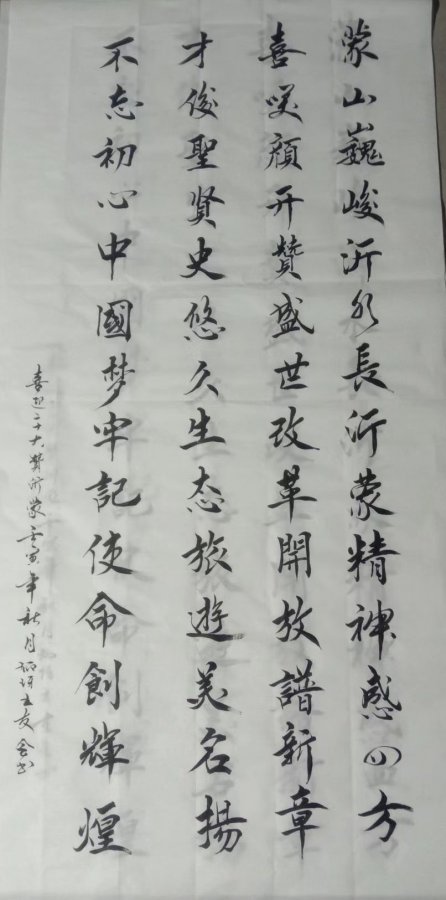 蒙山巍峻沂水長沂蒙精神感四方
喜咲顔开赞盛世改革開放譜新章
才俊聖贤史悠久生态旅遊美名揚
不忘初心中國梦牢記使命創輝煌
喜迎二十大赞沂蒙壬寅年秋月临沂王友